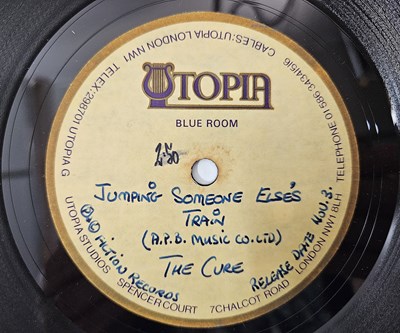 TELEX: 298701 UTOPIA G
CABLES: UTOPIA LONDON NW1
TELEPHONE 01 586 3434/5/6
UTOPIA
BLUE ROOM
2.50
JUMPING SOMEONE ELSE'S
TRAIN
(A.P.B. MUSIC CO. LTD)
THE CURE
ACTION RECORDS
RELEASE DATE NOV. 3.
UTOPIA STUDIOS
SPENCER COURT
7 CHALCOT ROAD
LONDON NW1 8LH